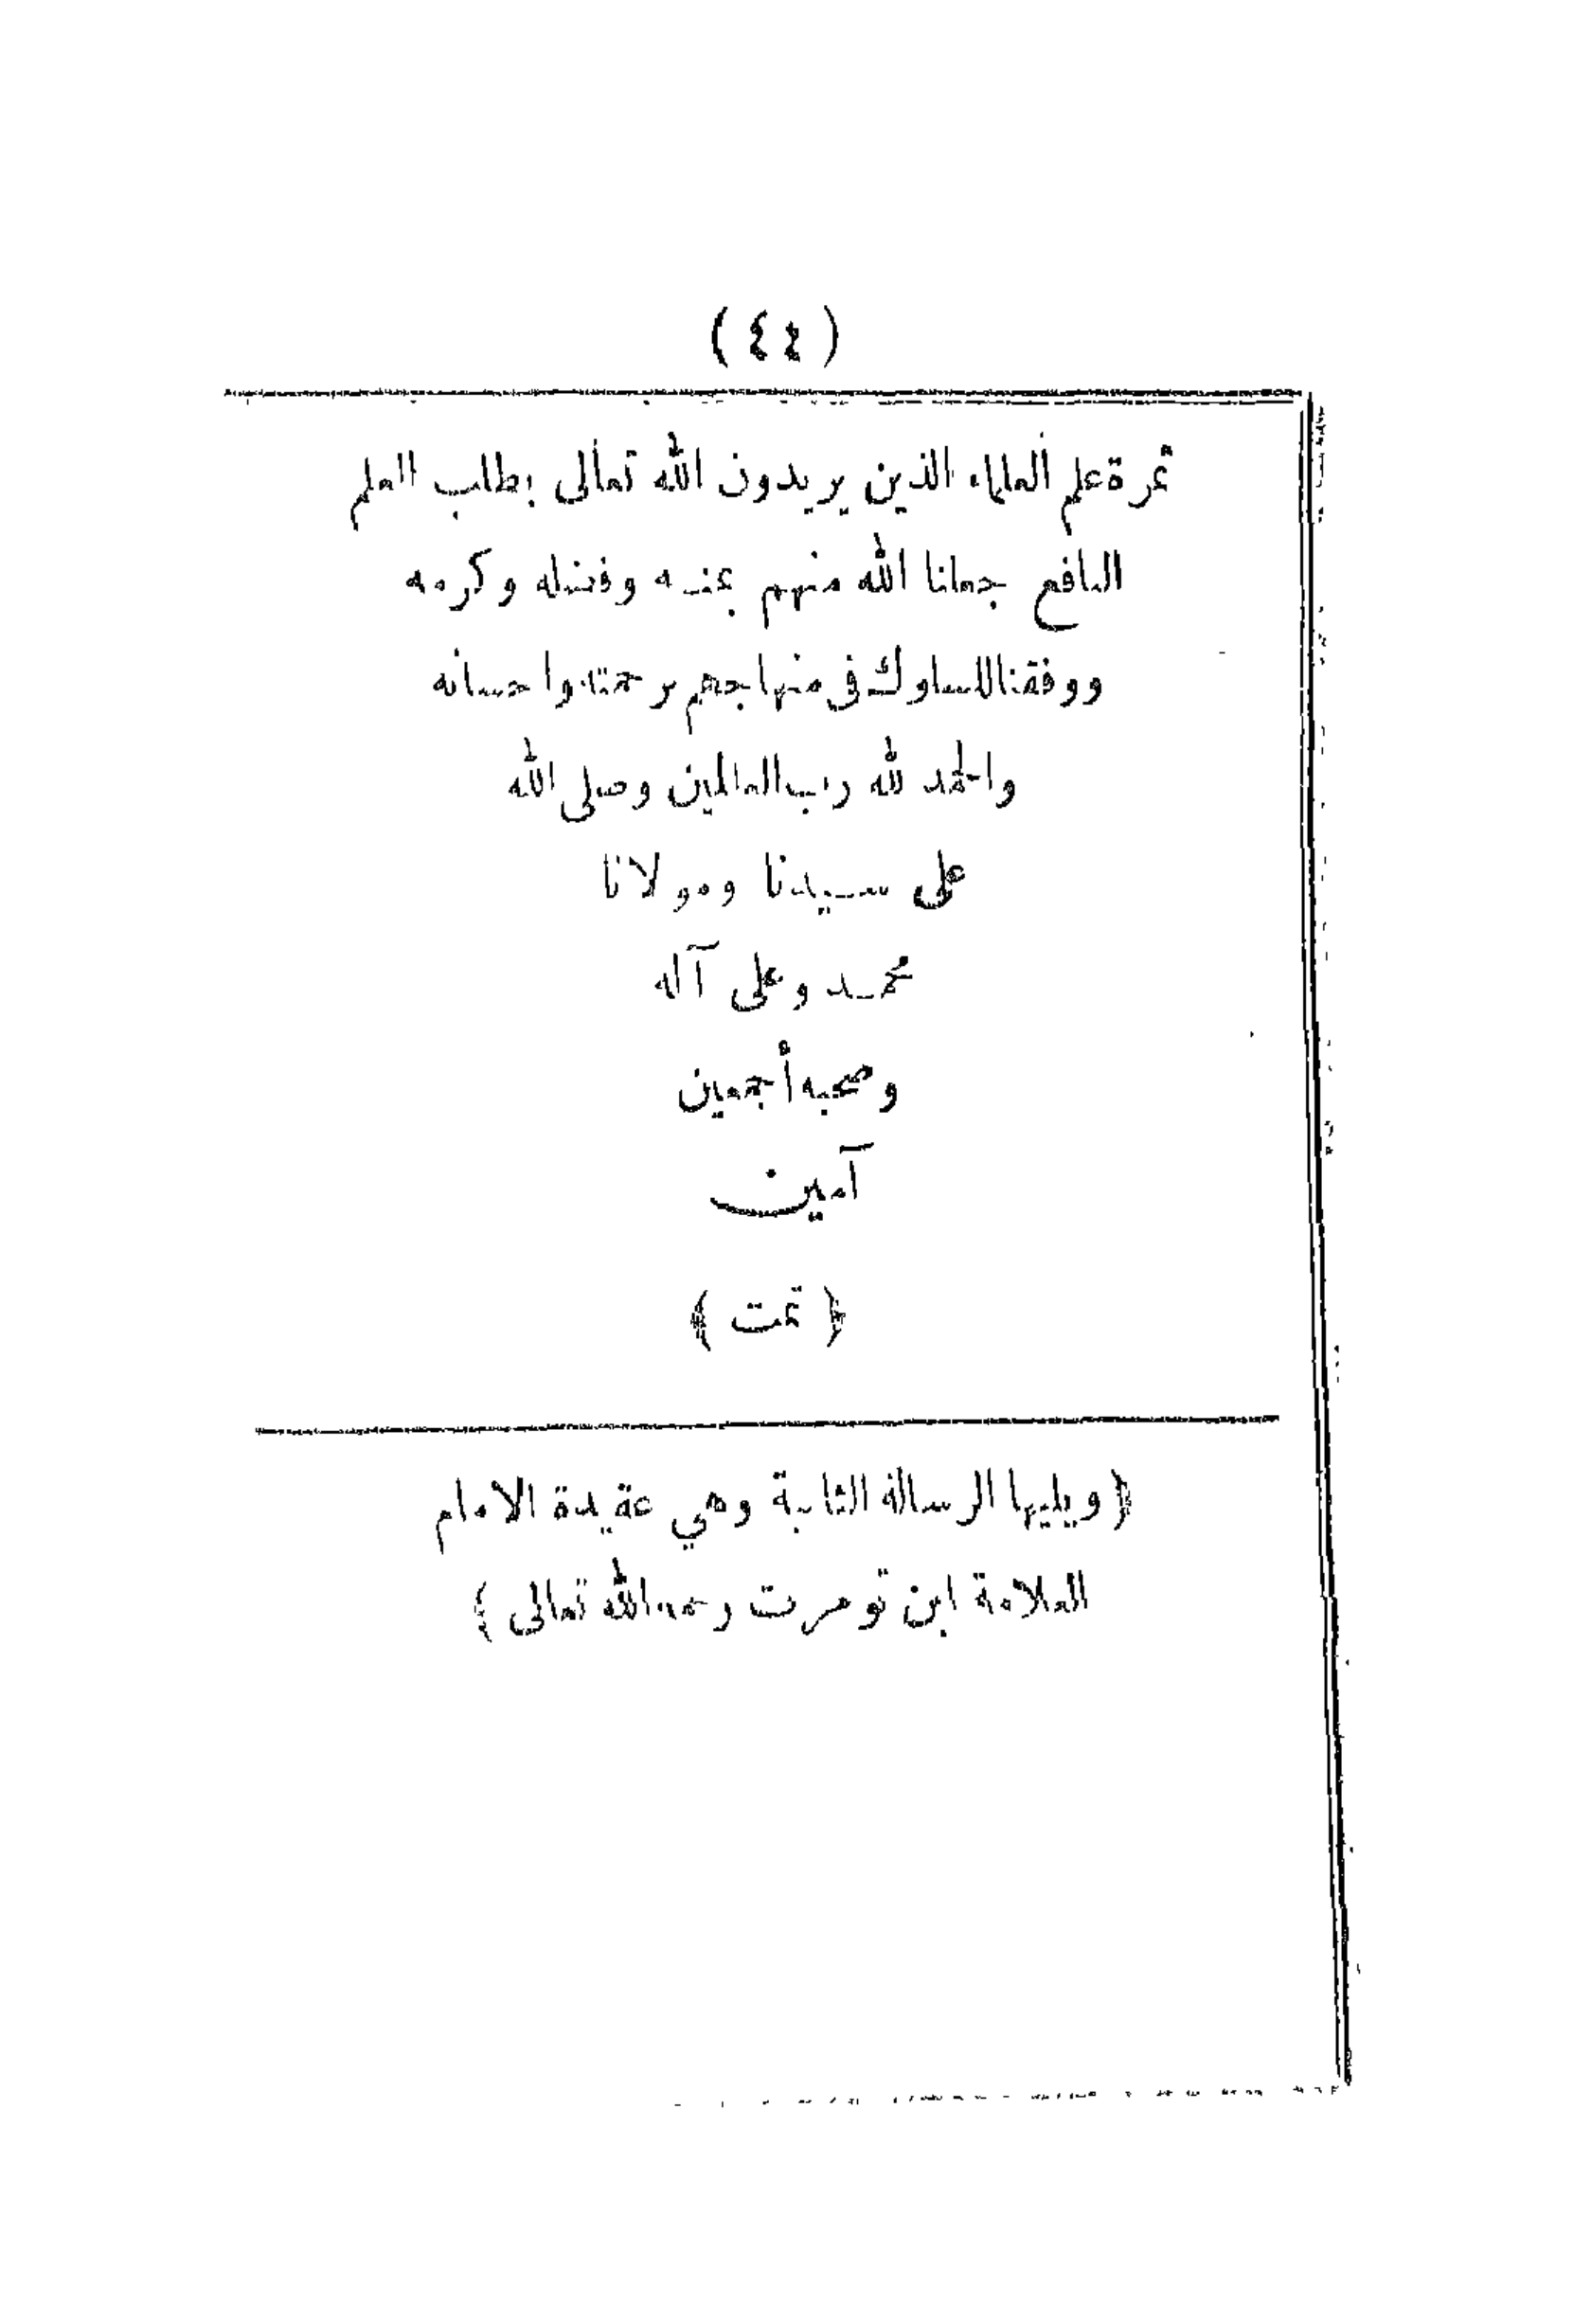 (٤٤)
ثمرة علم العلماء الذين يريدون الله تعالى بطلب العلم
النافع جعلنا الله منهم بمنه وفضله وكرمه
ووفقنا للسلوك في منهاجهم برحمته واحسانه
والحمد لله رب العالمين وصلى الله
على سيدنا ومولانا
محمد وعلى آله
وصحبه أجمعين
آمين
﴿ تمت ﴾
﴿ ويليها الرسالة الثانية وهي عقيدة الامام
العلامة ابن تومرت رحمه الله تعالى ﴾